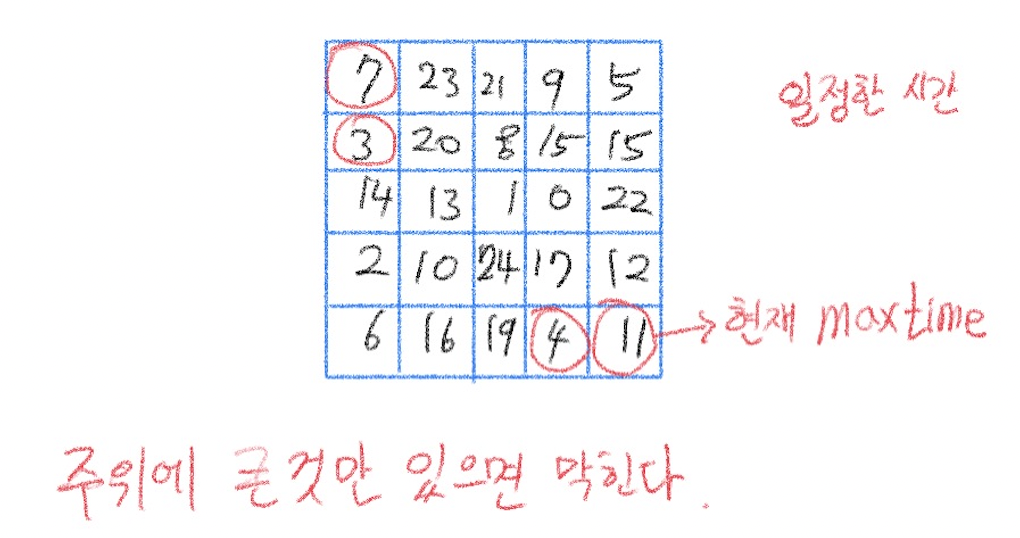 7 23 21 9 5
일정한 시간
3 20 8 15 15
14 13 1 0 22
2 10 24 17 12
6 16 19 4 11 → 현재 maxtime
주위에 큰것만 있으면 막힌다.